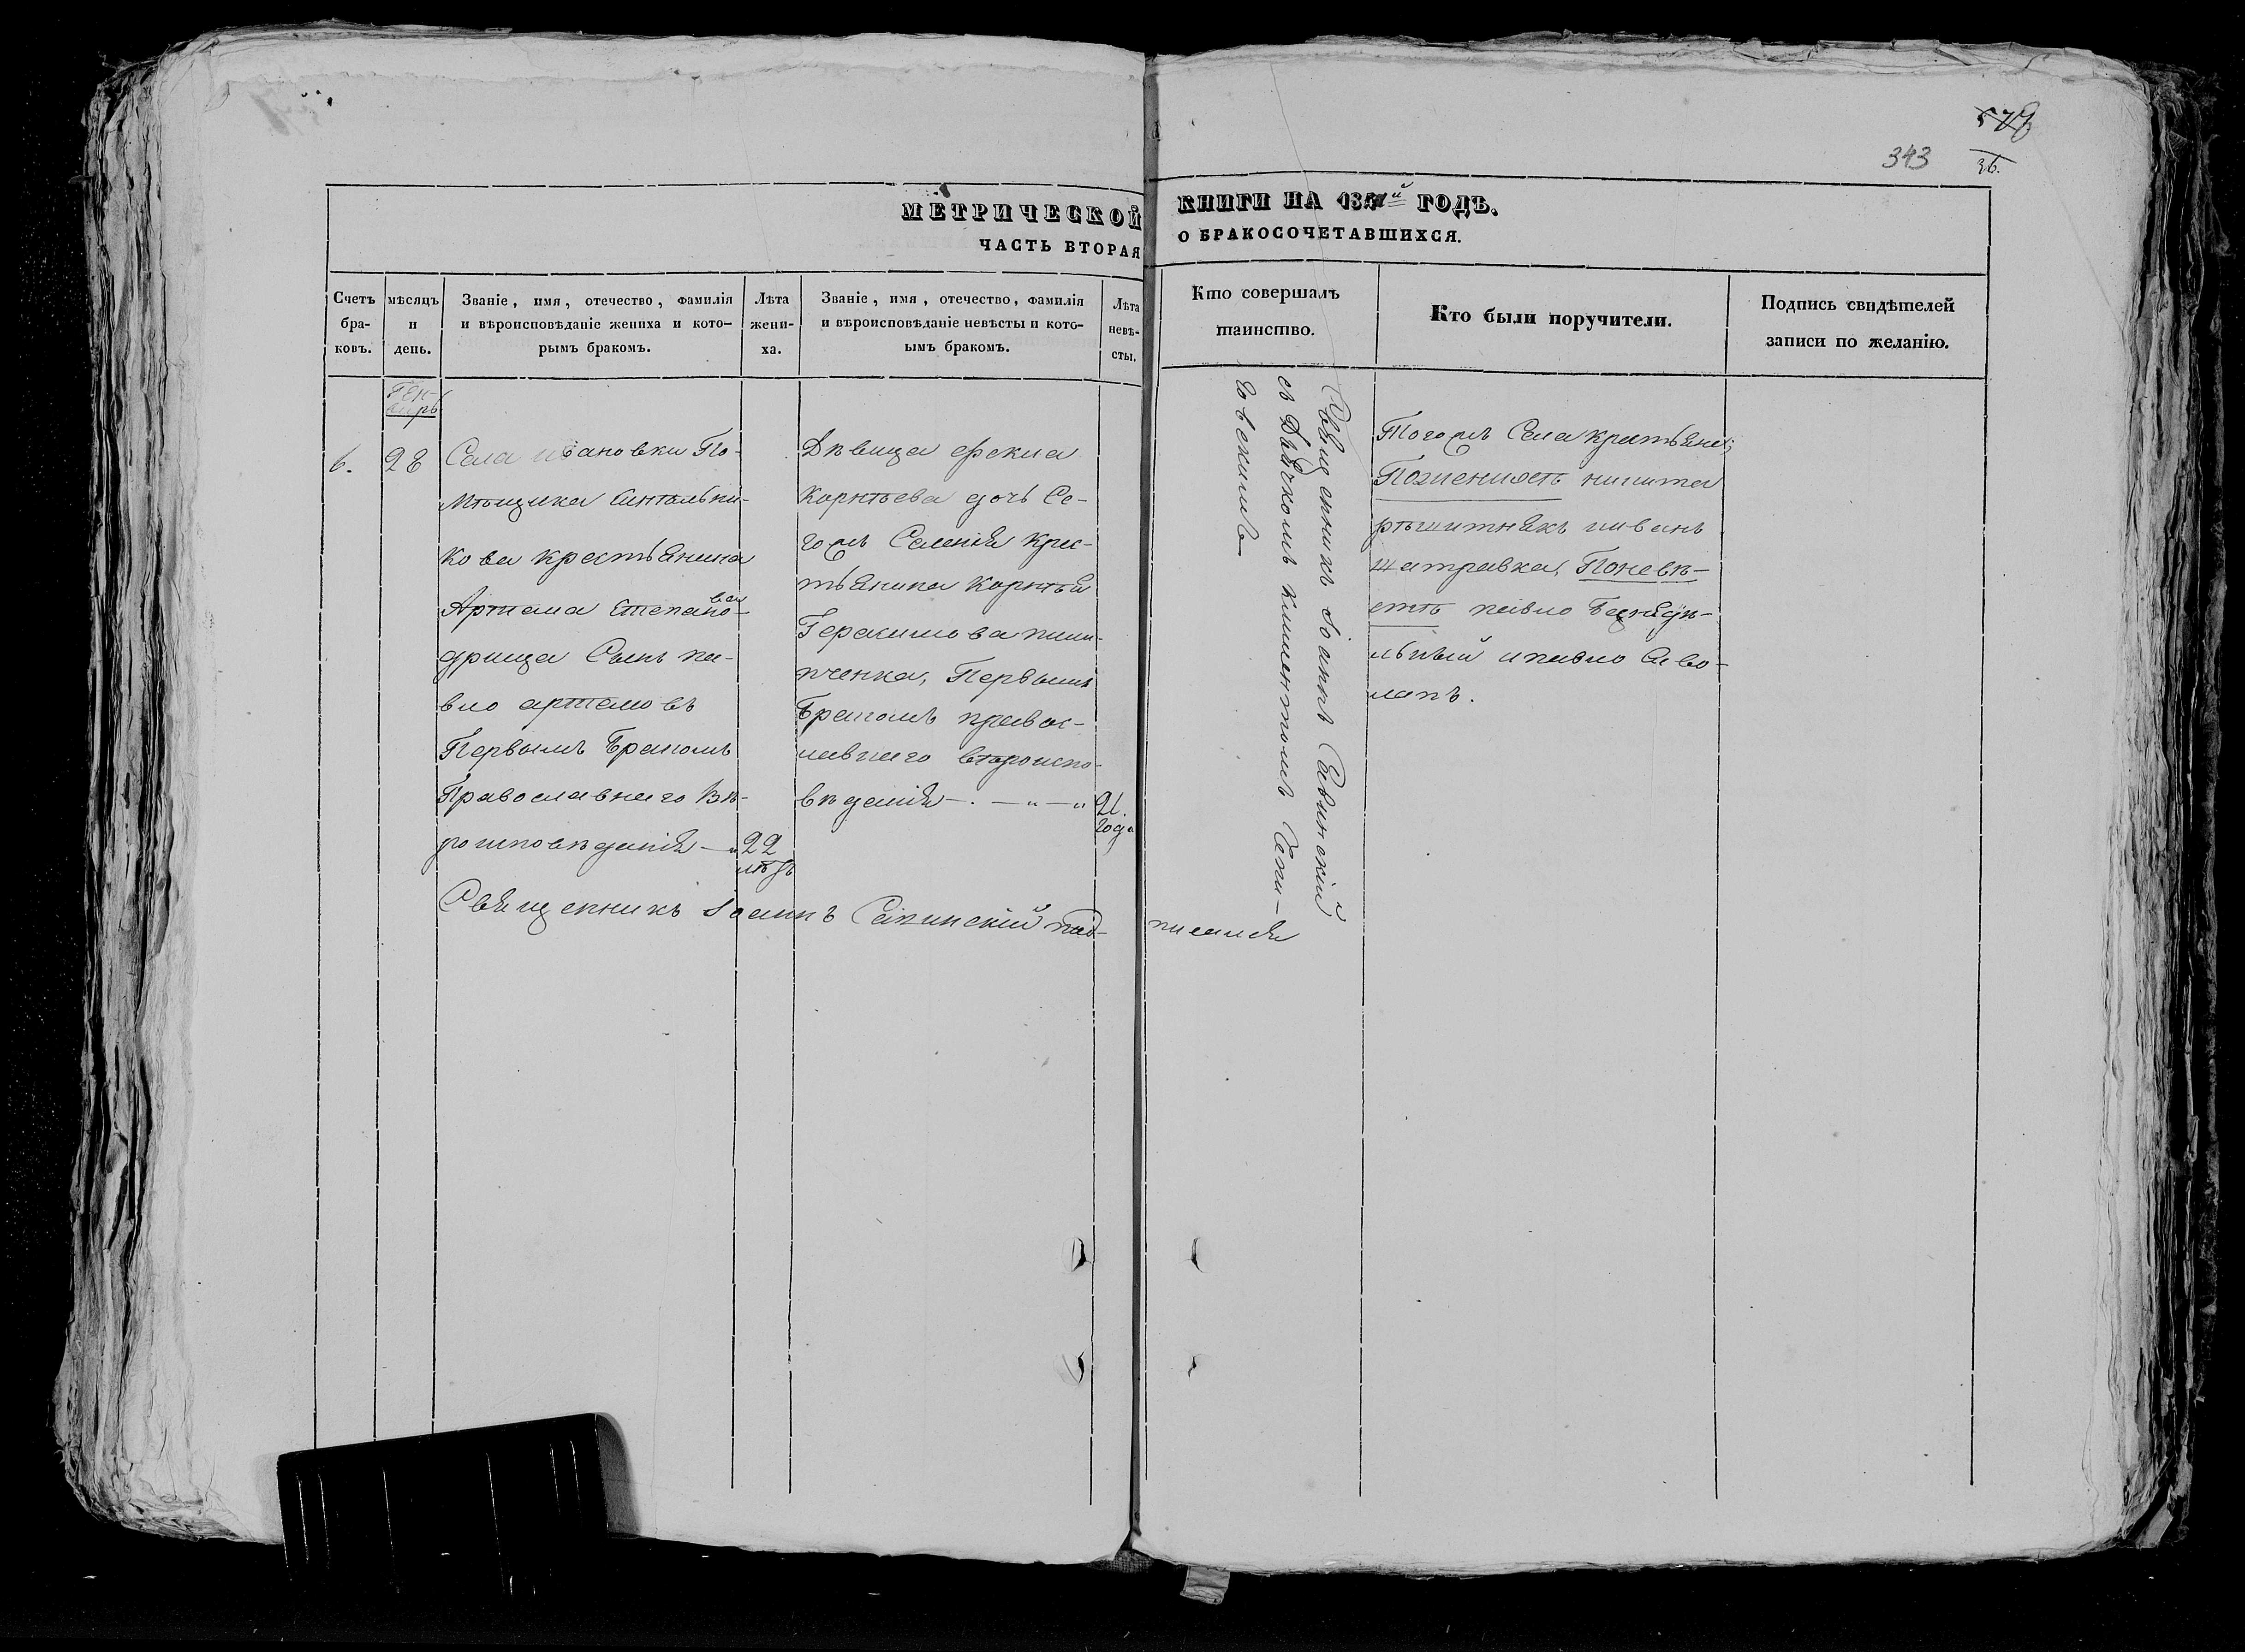 579
343
36.
МЕТРИЧЕСКОЙ КНИГИ НА 1851й ГОДЪ.
ЧАСТЬ ВТОРАЯ О БРАКОСОЧЕТАВШИХСЯ.
Счетъ
бра-
ковъ.
мѣсяцъ
и
день.
Званіе, имя, отечество, фамилія
и вѣроисповѣданіе жениха и кото-
рымъ бракомъ.
Лѣта
жени-
ха.
Званіе, имя, отечество, фамилія
и вѣроисповѣданіе невѣсты и кото-
ымъ бракомъ.
Лѣта
невѣ-
сты.
Кто совершалъ
таинство.
Кто были поручители.
Подпись свидѣтелей
записи по желанію.
ГЕН-
варь
6.
28
Села ивановки По-
мѣщика
кова крестьянина
Артема Степано-
ва
дрища Сынъ па-
вло артемовъ
Первымъ Бракомъ
Православнаго Вѣ-
роисповѣданія — „
22
лѣтъ
Дѣвица
Корнѣева дочь Се-
гожъ Селенія крес-
тьянина Корнѣя
Герасимова пили-
пченка, Первымъ
Бракомъ правос-
лавнаго вѣроиспо-
вѣданія — . — „ — „
21.
года
Священникъ Іоаннъ Савинскій
съ Дьячкомъ климентомъ Сани-
ковскимъ
Тогожъ Села крестьяне;
Поженихѣ никита
рѣшитнякъ ииванъ
шатравка, Поневѣ-
стѣ павло
льный ипавло Сиво-
лапъ.
Священникъ Іоаннъ Савинскій под-
писался